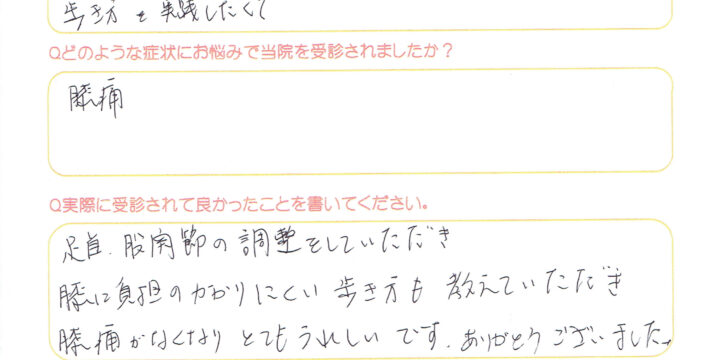 歩き方を実践したくて
Qどのような症状にお悩みで当院を受診されましたか？
膝痛
Q実際に受診されて良かったことを書いてください。
足首、股関節の調整をしていただき
膝に負担のかかりにくい歩き方も教えていただき
膝痛がなくなりとてもうれしいです。ありがとうございました。